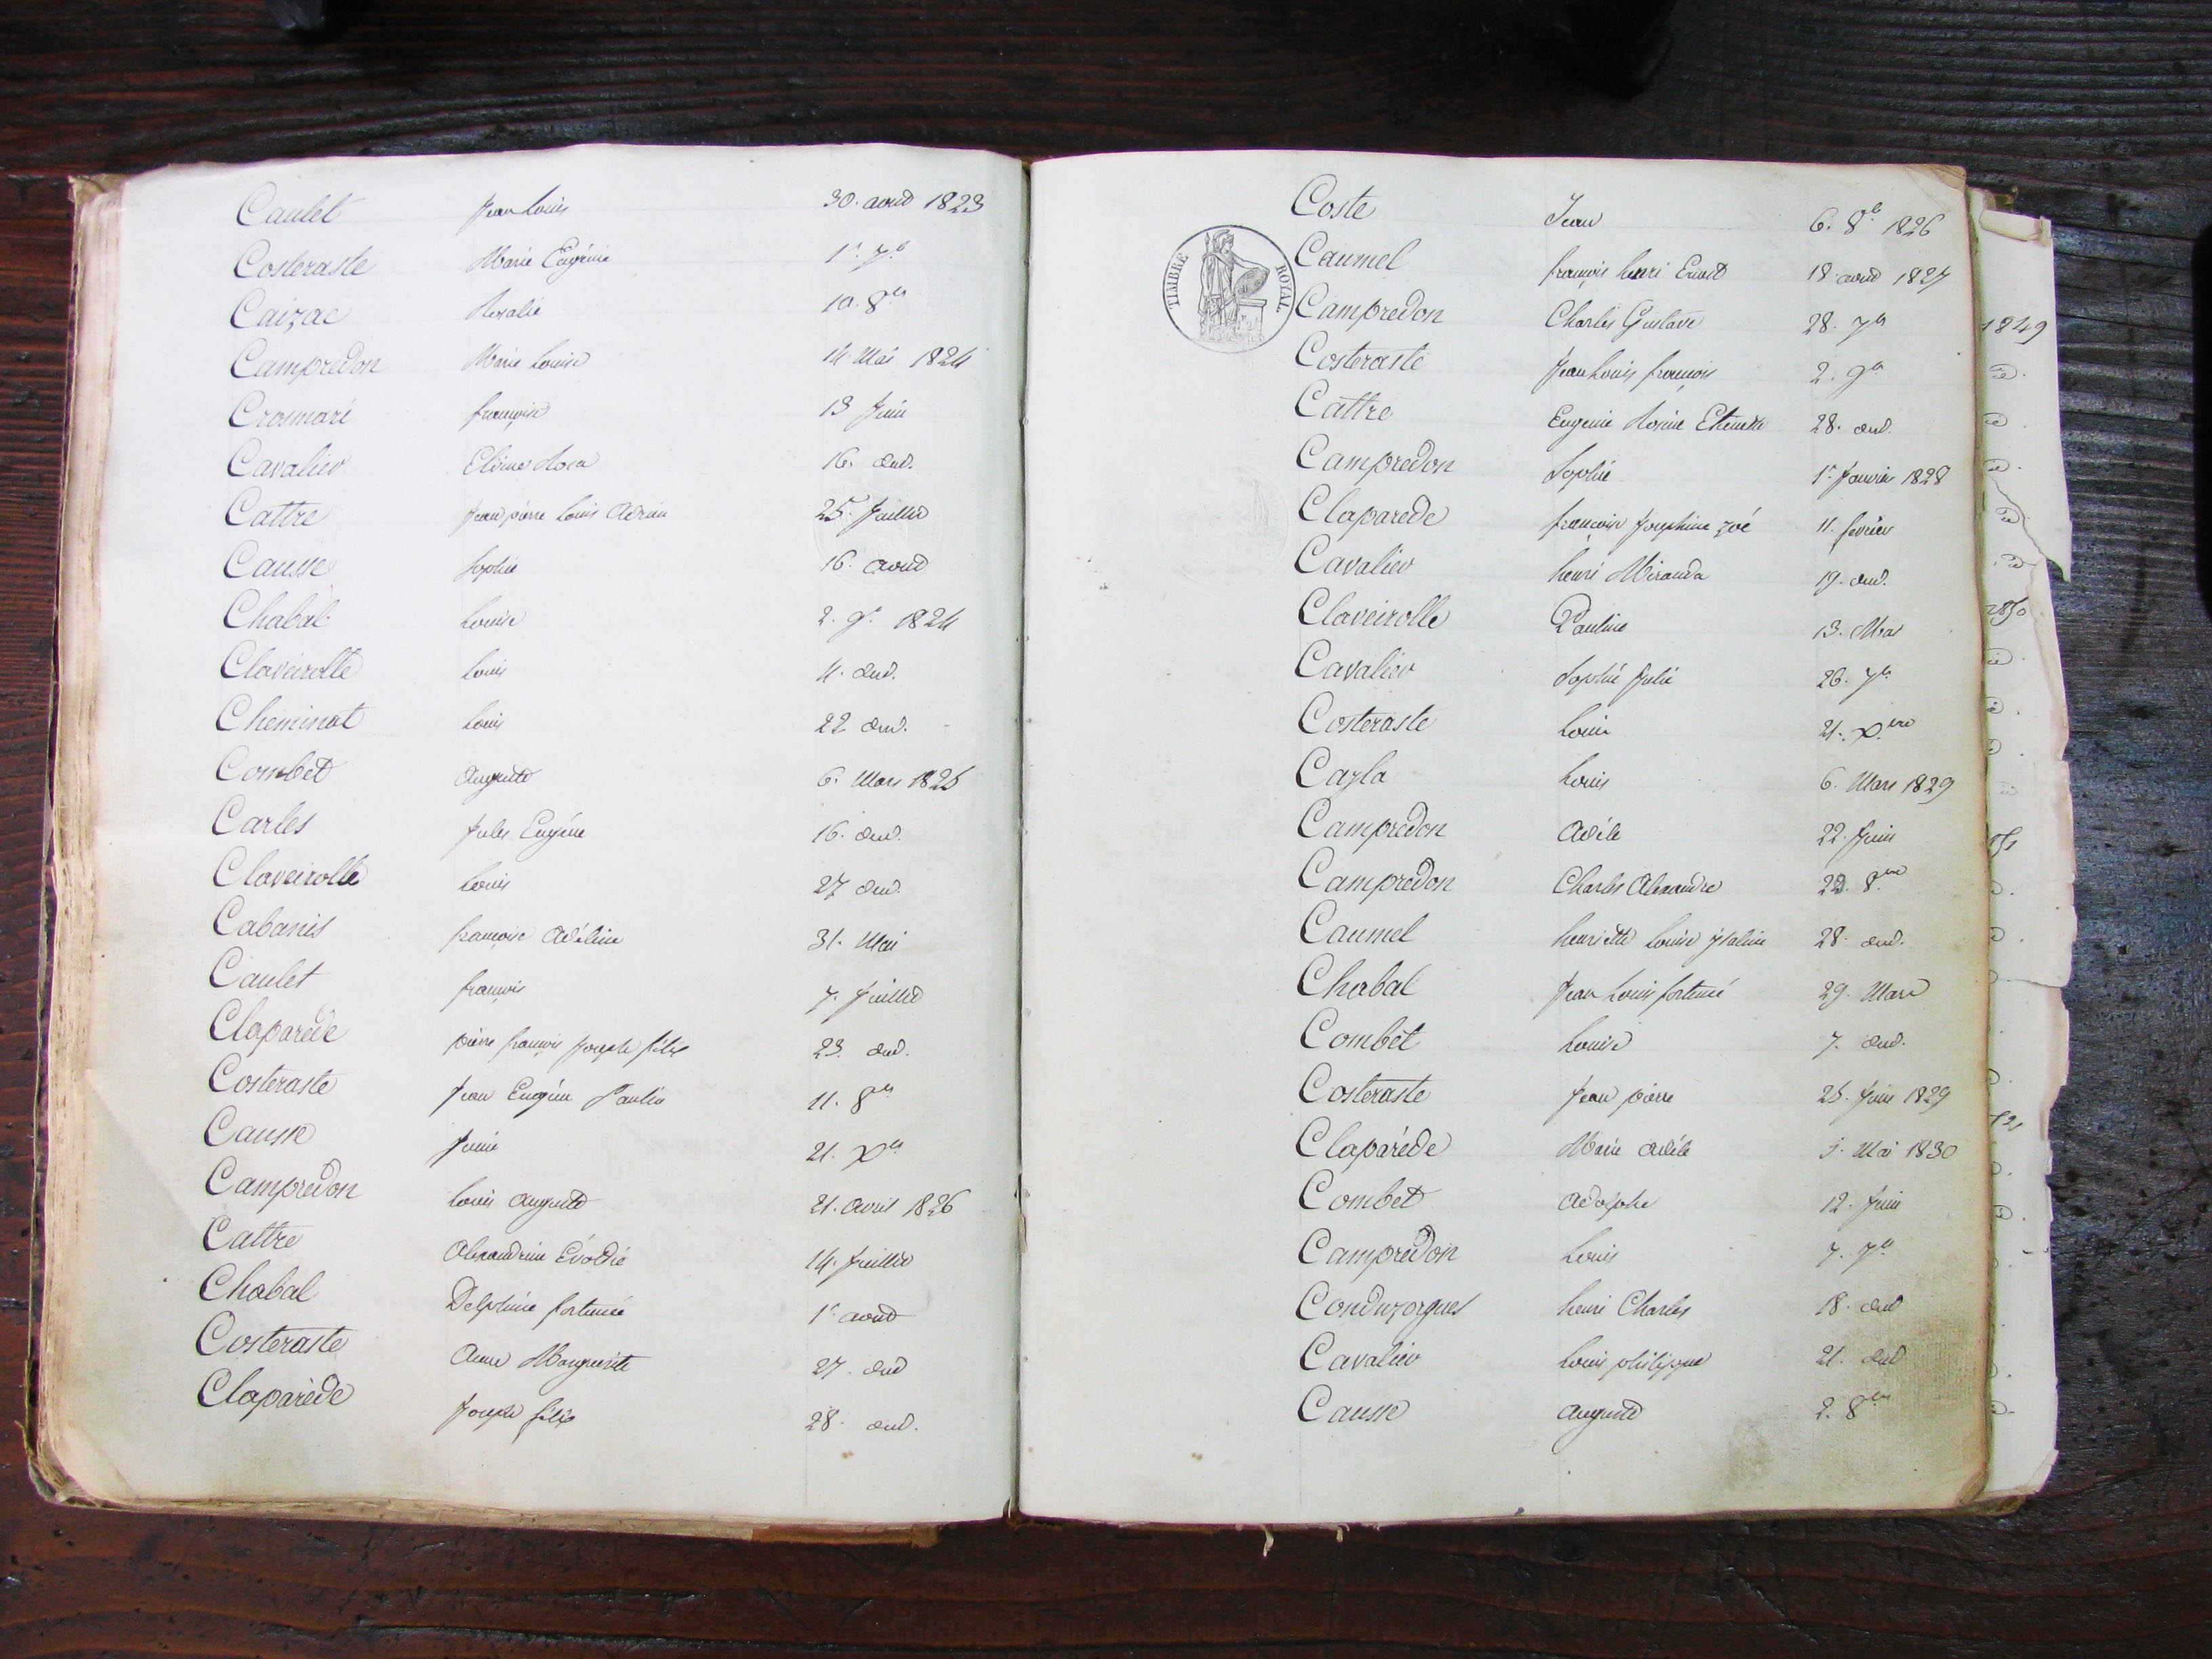 Caulet Jean Louis 30. aout 1823
Costeraste Marie Eugénie 1r. 7b
Caizac Rosalie 10. 8bre
Campredon Marie Louise 14 Mai 1824
Crosmari françoise 13 Juin
Cavalier Elisme Rosa 16. dud.
Cattre Jean pierre Louis Adrien 25. Juillet
Causse Sophie 16. aout
Chabal Louise 2. 9r. 1824
Claveirolle Louis 4. dud.
Cheminat Louis 22 dud.
Combet Auguste 6. Mars 1825
Carles Jules Eugène 16. dud.
Claveirolle Louis 27 dud.
Cabanis françoise Adéline 31. Mai
Caulet françois 7. Juillet
Claparède pierre françois Joseph félix 23. dud.
Costeraste Jean Eugène Paulin 11. 8bre
Causse Junie 21. Xbre
Campredon Louis Auguste 21. avril 1826
Cattre Alexandrine Evodié 14. Juillet
Chabal Delphine fortunée 1r. aout
Costeraste Anne Marguerite 27. dud
Claparède Joseph félix 28. dud.
TIMBRE ROYAL
Coste Jean 6. 8b. 1826
Caumel françois henri Ernest 18. aout 1827
Campredon Charles Gustave 28. 7bre
Costeraste Jean Louis françois 2. 9bre
Cattre Eugenie Rosine Etienette 28. dud.
Campredon Sophie 1r. Janvier 1828
Claparede françoise Josephine zoé 11. fevrier
Cavalier henri Miranda 19. dud.
Claveirolle Pauline 13. Mai
Cavalier Sophie Julie 26. 7bre
Costeraste Louis 21. Xbre
Cazla Louis 6. Mars 1829
Campredon Adèle 22. Juin
Campredon Charles Alexandre 22. 8bre
Caumel henriette Louise ysaline 28. dud.
Chabal Jean Louis fortuné 29. Mars
Combet Louise 7. dud.
Costeraste Jean pierre 25. Juin 1829
Claparède Marie Adèle 5. Mai 1830
Combet Adolphe 12. Juin
Campredon Louis 7. 7bre
Conduzorgues henri Charles 18. dud
Cavalier Louis philippe 21. dud
Causse Auguste 2. 8bre
1849
1850